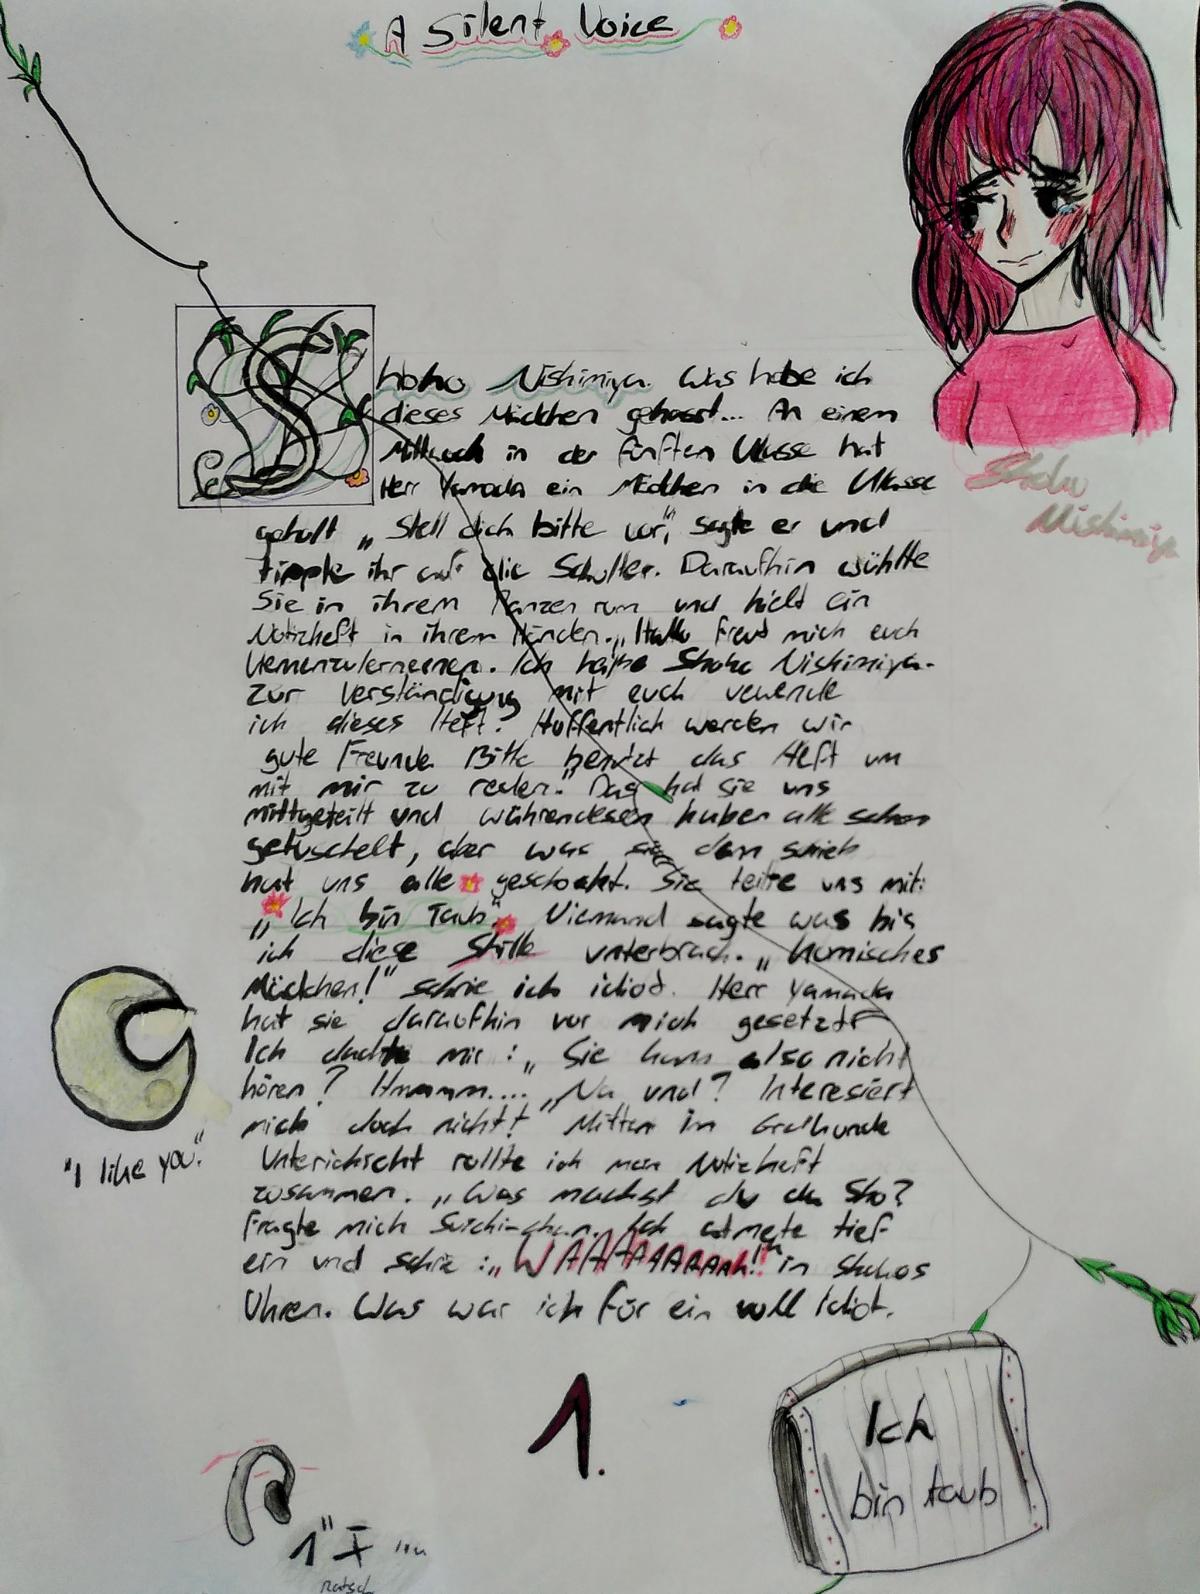 A Silent Voice
Shoko Nishimiya. Was habe ich
dieses Mädchen gehasst... An einem
Mittwoch in der fünften Klasse hat
Herr Yamada ein Mädchen in die Klasse
geholt „Stell dich bitte vor," sagte er und
tippte ihr auf die Schulter. Daraufhin wühlte
Sie in ihrem Ranzen rum und hielt ein
Notizheft in ihrem Händen. „Hallo freut mich euch
kennenzulerneenen. Ich heiße Shoko Nishimiya.
zur Verständigung mit euch verwende
ich dieses Heft. Hoffentlich werden wir
gute Freunde Bitte benutzt das Heft um
mit mir zu reden." Das hat sie uns
mittgeteilt und währendesen haben alle schon
getuschelt, aber was sie dan schrieb
hat uns alle geschockt. Sie teilte uns mit:
„Ich bin Taub". Niemand sagte was bis
ich diese Stille unterbrach. „Komisches
Mädchen!" schrie ich idiot. Herr Yamada
hat sie daraufhin vor mich gesetzt
Ich dachte mir: „Sie kann also nicht
hören? Hmmmm.... „Na und? Interesiert
mich doch nicht! Mitten im
Unterichscht rollte ich mein Notizheft
zusammen. „Was machst du da Sho?
Fragte mich Ich atmete tief
ein und schrie: „WAAAAAAAAAh!!" in Shokos
Ohren. Was war ich für ein voll Idiot.
Shoko
Nishimiya
"I like you."
1.
Ich
bin taub
ratsch